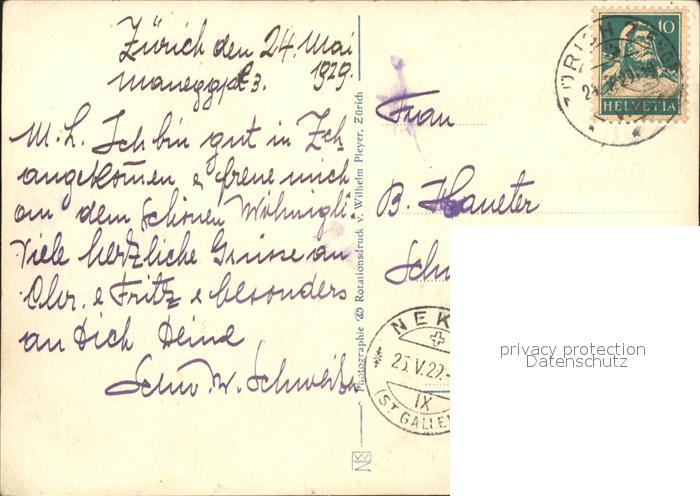 Zürich den 24. Mai
Maneggpl. 3. 1929.
M. L. Ich bin gut in Zch
angekom̄en & freue mich
an dem schönen Wohnigli.
Viele herzliche Grüsse an
Chr. & Fritz & besonders
an Dich Deine
Schw. W.
Photographie & Rotationsdruck v. Wilhelm Pleyer, Zürich
10
HELVETIA
ZÜRICH
Frau
B. Haueter
NEK
25.V.29.
IX
(ST. GALLEN
privacy protection
Datenschutz